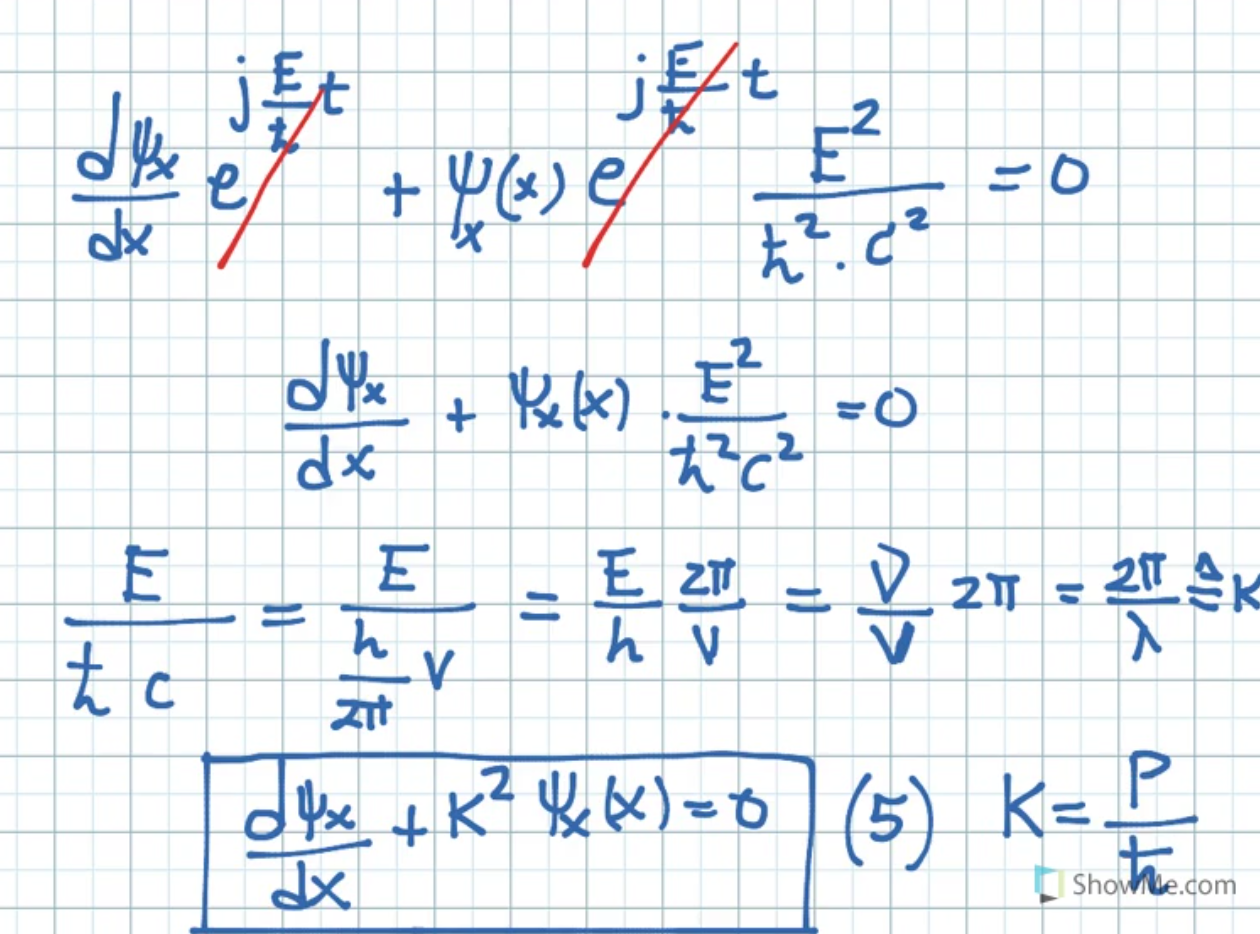 dψₓ/dx e^(j E/ħ t) + ψₓ(x) e^(j E/ħ t) E²/(ħ² · c²) = 0
dψₓ/dx + ψₓ(x) · E²/(ħ²c²) = 0
E/(ħ c) = E/((h/2π) v) = E/h 2π/v = ν/v 2π = 2π/λ ≜ K
dψₓ/dx + K² ψₓ(x) = 0 (5) K = P/ħ
ShowMe.com